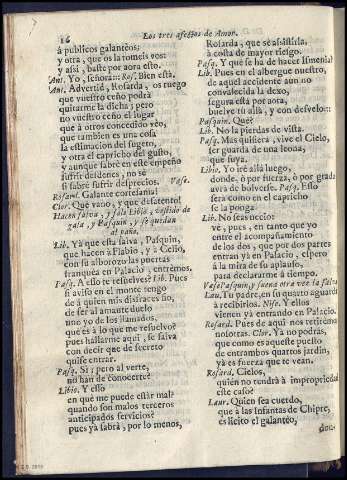 16
Los tres afectos de Amor.
à publicos galanteos;
y otra, que os la tomeis vos:
y assi, baste por aora esto.
Ant. Yo, señora::: Ros. Bien està.
Ant. Advertid, Rosarda, os ruego
que vuestro ceño podrá
quitarme la dicha; pero
no vuestro ceño el lugar
que à otros concedido veo,
que tambien es una cosa
la estimacion del sugeto,
y otra el capricho del gusto,
y aunque sabrè en este empeño
sufrir desdenes, no sè
si sabrè sufrir desprecios. Vase.
Rosard. Galante cortedania!
Clor. Què vano, y que desatento!
Hacen salva, y sale Libio, vestido de
gala, y Pasquin, y se quedan
al paño.
Lib. Yà que esta salva, Pasquin,
que hacen à Flabio, y à Celio,
con su alborozo las puertas
franquea en Palacio, entremos.
Pasq. A esso te resuelves? Lib. Pues
si aviso en el monte tengo
de à quien mis disfraces no,
de ser al amante duelo
uno yo de los llamados,
què es à lo que me resuelvo?
pues hallarme aqui, se salva
con decir que de secreto
quise entrar.
Pasq. Si; pero al verte,
no han de conocerte?
Libio. Y esso
en què me puede estàr mal?
quando son malos terceros
anticipados servicios?
pues ya sabrà, por lo menos,
Rosarda, que se assistirla,
à costa de mayor riesgo.
Pasq. Y què se ha de hacer Ismenia?
Lib. Pues en el albergue nuestro,
de aquel accidente aun no
convalecida la dexo,
segura està por aora,
buelve tu allà, y con desvelo:::
Pasquin. Què?
Lib. No la pierdas de vista.
Pasq. Mas quisiera, vive el Cielo,
ser guarda de una leona,
que suya.
Libio. Yo irè allà luego,
donde, ò por fuerza, ò por grado
avrà de bolverse. Pasq. Esso
serà como en el capricho
se la ponga.
Lib. No seas necio:
vè, pues, en tanto que yo
entre el acompañamiento
de los dos, que por dos partes
entran yà en Palacio, espero
à la mira de su aplauso,
para declararme à tiempo.
Vase Pasquin, y suena otra vez la salva.
Lau. Tu padre, en su quarto aguarda
à recibirlos. Nise. Y ellos
vienen yà entrando en Palacio.
Rosard. Pues de aqui nos retirèmos
nosotras. Clor. Yà no podràs,
que como es aqueste puesto
de entrambos quartos jardin,
ya es fuerza que te vean.
Rosard. Cielos,
quien no tendrà à impropriedad
este caso?
Laur. Quien sea cuerdo,
que à las Infantas de Chipre,
es licito el galanteo,
don-